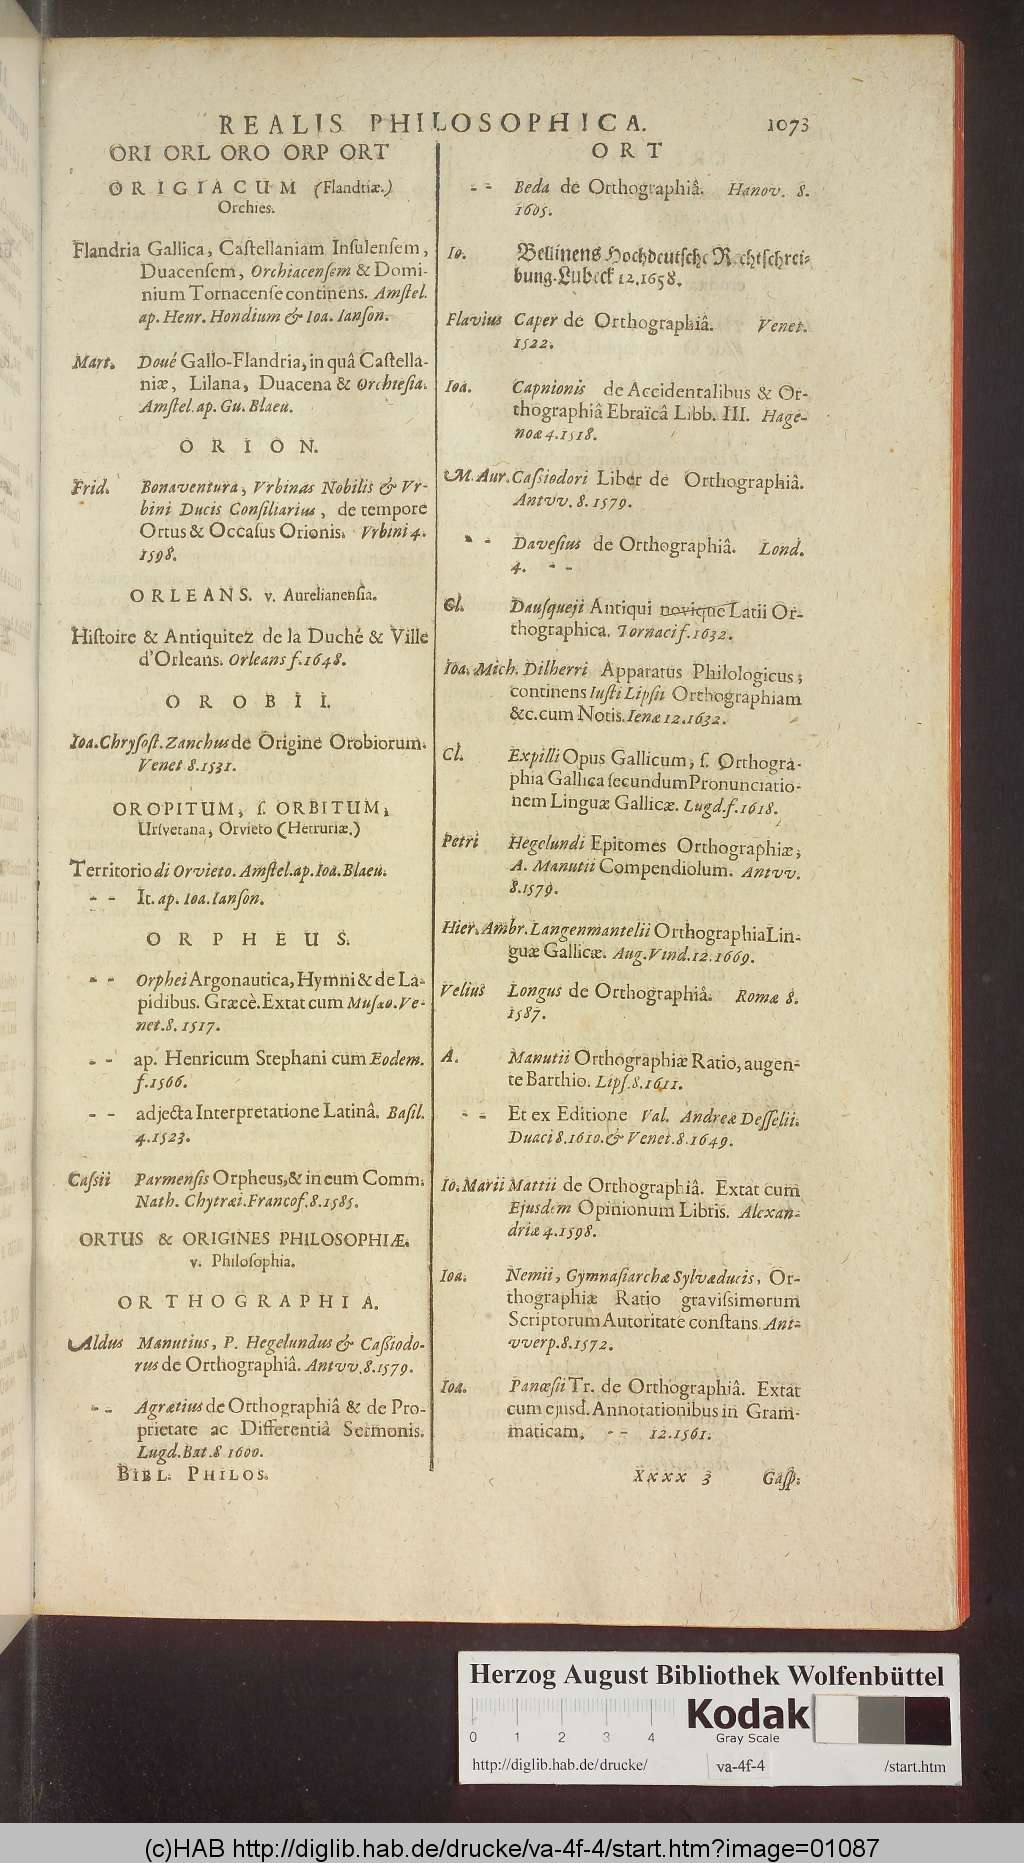 REALIS PHILOSOPHICA. 1073
ORI ORL ORO ORP ORT
ORIGIACUM (Flandriæ.)
Orchies.
Flandria Gallica, Caſtellaniam Inſulenſem,
Duacenſem, Orchiacenſem & Domi-
nium Tornacenſe continens. Amſtel.
ap. Henr. Hondium & Ioa. Ianſon.
Mart. Doué Gallo-Flandria, in quâ Caſtella-
niæ, Lilana, Duacena & Orchieſia.
Amſtel. ap. Gu. Blaeu.
ORION.
Frid. Bonaventuræ, Vrbinas Nobilis & Vr-
bini Ducis Conſiliarius, de tempore
Ortus & Occaſus Orionis. Vrbini 4.
1598.
ORLEANS. v. Aurelianenſia.
Hiſtoire & Antiquitez de la Duché & Ville
d'Orleans. Orleans f. 1648.
OROBII.
Ioa. Chryſoſt. Zanchus de Origine Orobiorum.
Venet 8. 1531.
OROPITUM, ſ. ORBITUM,
Urſvetana, Orvieto (Hetruriæ.)
Territorio di Orvieto. Amſtel. ap. Ioa. Blaeu.
- - It. ap. Ioa. Ianſon.
ORPHEUS.
- - Orphei Argonautica, Hymni & de La-
pidibus. Græcè. Extat cum Muſæo. Ve-
net. 8. 1517.
- - ap. Henricum Stephani cum Eodem.
f. 1566.
- - adjecta Interpretatione Latinâ. Baſil.
4. 1523.
Caſsii Parmenſis Orpheus, & in eum Comm.
Nath. Chytræi. Francof. 8. 1585.
ORTUS & ORIGINES PHILOSOPHIÆ.
v. Philoſophia.
ORTHOGRAPHIA.
Aldus Manutius, P. Hegelundus & Caſsiodo-
rus de Orthographiâ. Antvv. 8. 1579.
- - Agrætius de Orthographiâ & de Pro-
prietate ac Differentiâ Sermonis.
Lugd. Bat. 8 1600.
BIBL. PHILOS.
ORT
- - Beda de Orthographiâ. Hanov. 8.
1605.
Io. Bellinens Hochdeutſche Rechtſchrei-
bung. Lubeck 12. 1658.
Flavius Caper de Orthographiâ. Venet.
1522.
Ioa. Capnionis de Accidentalibus & Or-
thographiâ Ebraïcâ Libb. III. Hage-
noæ 4. 1518.
M. Aur. Caſsiodori Liber de Orthographiâ.
Antvv. 8. 1579.
- - Daveſius de Orthographiâ. Lond.
4. - -
Cl. Dauſqueji Antiqui novique Latii Or-
thographica. Tornaci f. 1632.
Ioa. Mich. Dilherri Apparatus Philologicus,
continens Iuſti Lipſii Orthographiam
&c. cum Notis. Ienæ 12. 1632.
Cl. Expilli Opus Gallicum, ſ. Orthogra-
phia Gallica ſecundum Pronunciatio-
nem Linguæ Gallicæ. Lugd. f. 1618.
Petri Hegelundi Epitomes Orthographiæ,
A. Manutii Compendiolum. Antvv.
8. 1579.
Hier. Ambr. Langenmantelii Orthographia Lin-
guæ Gallicæ. Aug. Vind. 12. 1669.
Velius Longus de Orthographiâ. Romæ 8.
1587.
A. Manutii Orthographiæ Ratio, augen-
te Barthio. Lipſ. 8. 1611.
- - Et ex Editione Val. Andreæ Deſſelii.
Duaci 8. 1610. & Venet. 8. 1649.
Io. Marii Mattii de Orthographiâ. Extat cum
Ejusdem Opinionum Libris. Alexan-
driæ 4. 1598.
Ioa. Nemii, Gymnaſiarchæ Sylvæducis, Or-
thographiæ Ratio graviſsimorum
Scriptorum Autoritate conſtans. Ant-
vverp. 8. 1572.
Ioa. Panœſii Tr. de Orthographiâ. Extat
cum ejusd. Annotationibus in Gram-
maticam. - - 12. 1561.
Xxxx 3 Gaſp.
Herzog August Bibliothek Wolfenbüttel
0 1 2 3 4
Kodak
Gray Scale
http://diglib.hab.de/drucke/ va-4f-4 /start.htm
(c)HAB http://diglib.hab.de/drucke/va-4f-4/start.htm?image=01087